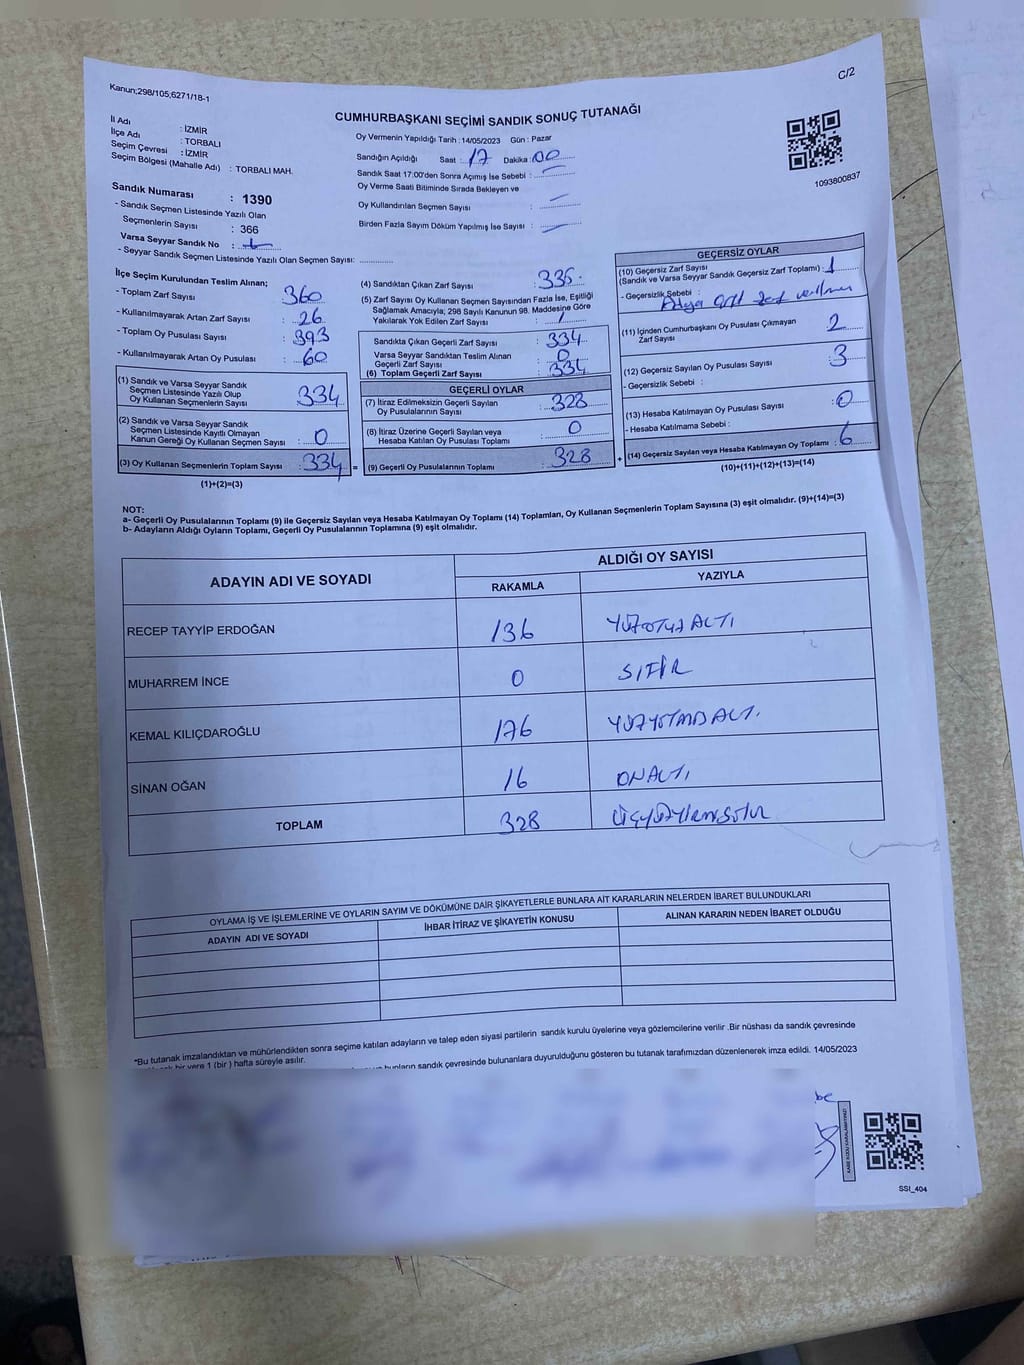 Kanun;298/105;6271/18-1
C/2
CUMHURBAŞKANI SEÇİMİ SANDIK SONUÇ TUTANAĞI
İl Adı : İZMİR
İlçe Adı : TORBALI
Seçim Çevresi : İZMİR
Seçim Bölgesi (Mahalle Adı) : TORBALI MAH.
Sandık Numarası : 1390
- Sandık Seçmen Listesinde Yazılı Olan
Seçmenlerin Sayısı : 366
Varsa Seyyar Sandık No :
- Seyyar Sandık Seçmen Listesinde Yazılı Olan Seçmen Sayısı:
Oy Vermenin Yapıldığı Tarih : 14/05/2023 Gün : Pazar
Sandığın Açıldığı Saat : 17 Dakika : 00
Sandık Saat 17:00'den Sonra Açımış İse Sebebi :
Oy Verme Saati Bitiminde Sırada Bekleyen ve
Oy Kullandırılan Seçmen Sayısı :
Birden Fazla Sayım Döküm Yapılmış İse Sayısı :
1093800837
İlçe Seçim Kurulundan Teslim Alınan;
- Toplam Zarf Sayısı : 360
- Kullanılmayarak Artan Zarf Sayısı : 26
- Toplam Oy Pusulası Sayısı : 393
- Kullanılmayarak Artan Oy Pusulası : 60
(1) Sandık ve Varsa Seyyar Sandık
Seçmen Listesinde Yazılı Olup
Oy Kullanan Seçmenlerin Sayısı : 334
(2) Sandık ve Varsa Seyyar Sandık
Seçmen Listesinde Kayıtlı Olmayan
Kanun Gereği Oy Kullanan Seçmen Sayısı : 0
(3) Oy Kullanan Seçmenlerin Toplam Sayısı : 334 =
(1)+(2)=(3)
(4) Sandıktan Çıkan Zarf Sayısı : 335
(5) Zarf Sayısı Oy Kullanan Seçmen Sayısından Fazla İse, Eşitliği
Sağlamak Amacıyla; 298 Sayılı Kanunun 98. Maddesine Göre
Yakılarak Yok Edilen Zarf Sayısı : 1
Sandıkta Çıkan Geçerli Zarf Sayısı : 334
Varsa Seyyar Sandıktan Teslim Alınan
Geçerli Zarf Sayısı : 0
(6) Toplam Geçerli Zarf Sayısı : 334
GEÇERLİ OYLAR
(7) İtiraz Edilmeksizin Geçerli Sayılan
Oy Pusulalarının Sayısı : 328
(8) İtiraz Üzerine Geçerli Sayılan veya
Hesaba Katılan Oy Pusulası Toplamı : 0
(9) Geçerli Oy Pusulalarının Toplamı : 328 +
GEÇERSİZ OYLAR
(10) Geçersiz Zarf Sayısı
(Sandık ve Varsa Seyyar Sandık Geçersiz Zarf Toplamı) : 1
- Geçersizlik Sebebi :
zarf
(11) İçinden Cumhurbaşkanı Oy Pusulası Çıkmayan
Zarf Sayısı 2
(12) Geçersiz Sayılan Oy Pusulası Sayısı : 3
- Geçersizlik Sebebi :
(13) Hesaba Katılmayan Oy Pusulası Sayısı : 0
- Hesaba Katılmama Sebebi :
(14) Geçersiz Sayılan veya Hesaba Katılmayan Oy Toplamı : 6
(10)+(11)+(12)+(13)=(14)
NOT:
a- Geçerli Oy Pusulalarının Toplamı (9) ile Geçersiz Sayılan veya Hesaba Katılmayan Oy Toplamı (14) Toplamları, Oy Kullanan Seçmenlerin Toplam Sayısına (3) eşit olmalıdır. (9)+(14)=(3)
b- Adayların Aldığı Oyların Toplamı, Geçerli Oy Pusulalarının Toplamına (9) eşit olmalıdır.
ADAYIN ADI VE SOYADI
ALDIĞI OY SAYISI
RAKAMLA YAZIYLA
RECEP TAYYİP ERDOĞAN 136 YÜZOTUZALTI
MUHARREM İNCE 0 SIFIR
KEMAL KILIÇDAROĞLU 176 YÜZYETMİŞALTI
SİNAN OĞAN 16 ONALTI
TOPLAM 328 üçyüzyirmisekiz
OYLAMA İŞ VE İŞLEMLERİNE VE OYLARIN SAYIM VE DÖKÜMÜNE DAİR ŞİKAYETLERLE BUNLARA AİT KARARLARIN NELERDEN İBARET BULUNDUKLARI
ADAYIN ADI VE SOYADI İHBAR İTİRAZ VE ŞİKAYETİN KONUSU ALINAN KARARIN NEDEN İBARET OLDUĞU
*Bu tutanak imzalandıktan ve mühürlendikten sonra seçime katılan adayların ve talep eden siyasi partilerin sandık kurulu üyelerine veya gözlemcilerine verilir .Bir nüshası da sandık çevresinde
bir yere 1 (bir ) hafta süreyle asılır.
bunların sandık çevresinde bulunanlara duyurulduğunu gösteren bu tutanak tarafımızdan düzenlenerek imza edildi. 14/05/2023
SSI_404